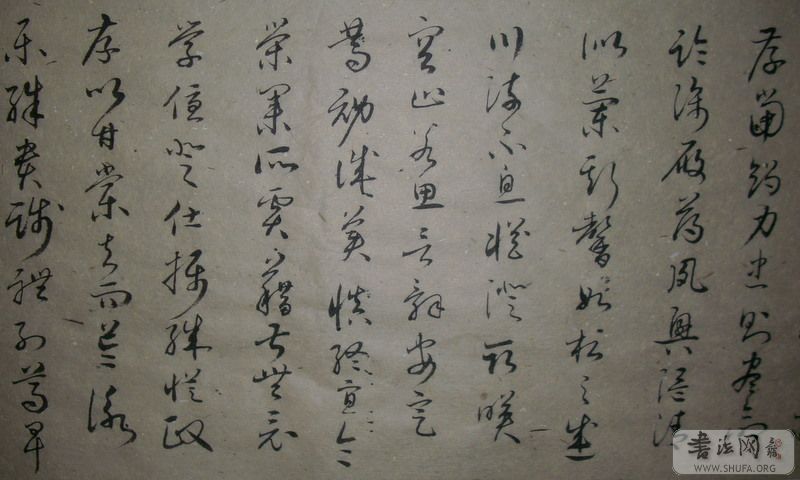 孝當竭力忠則盡命
臨深履薄夙興溫凊
似蘭斯馨如松之盛
川流不息淵澄取映
容止若思言辭安定
篤初誠美慎終宜令
榮業所基籍甚無竟
學優登仕攝職從政
存以甘棠去而益詠
樂殊貴賤禮別尊卑
書法网
WWW.SHUFA.ORG